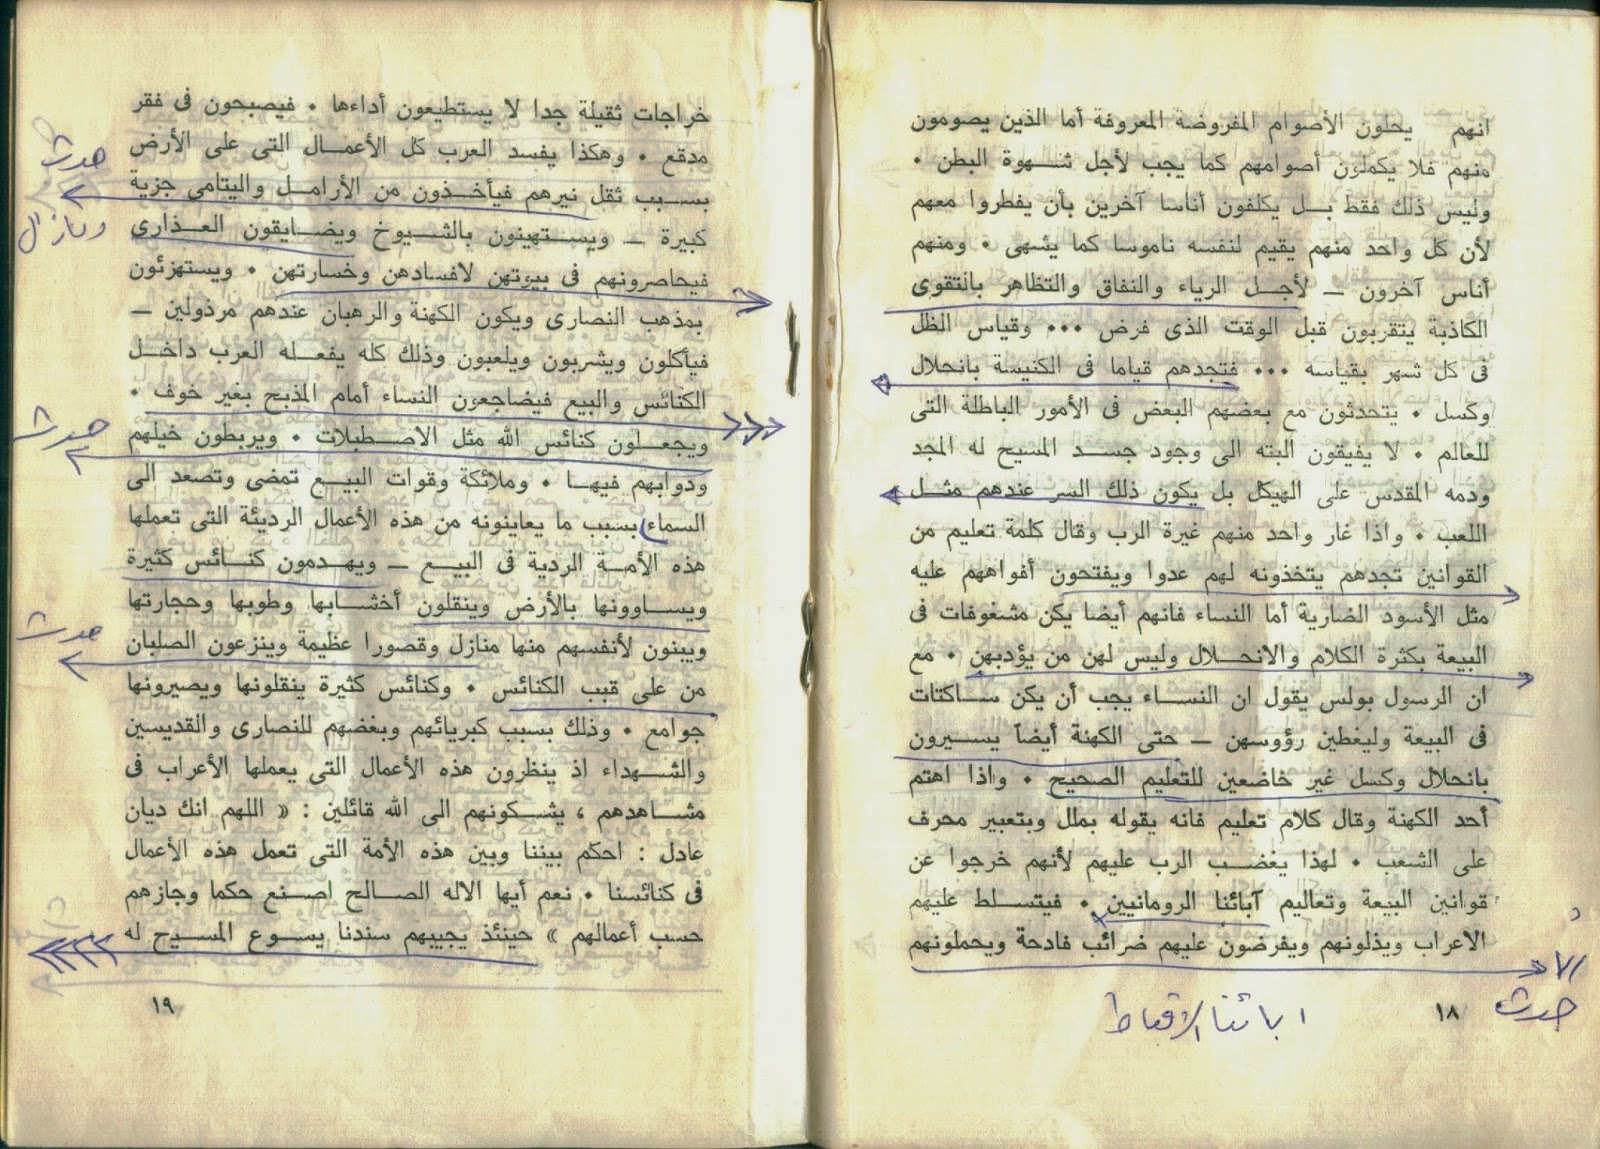 انهم يحلون الأصوام المفروضة المعروفة أما الذين يصومون
منهم فلا يكملون أصوامهم كما يجب لأجل شهوة البطن ٠
وليس ذلك فقط بل يكلفون أناسا آخرين بأن يفطروا معهم
لأن كل واحد منهم يقيم لنفسه ناموسا كما يشهى ٠ ومنهم
أناس آخرون ــ لأجل الرياء والنفاق والتظاهر بالتقوى
الكاذبة يتقربون قبل الوقت الذى فرض ٠٠٠ وقياس الظل
فى كل شهر بقياسه ٠٠٠ فتجدهم قياما فى الكنيسة بانحلال
وكسل ٠ يتحدثون مع بعضهم البعض فى الأمور الباطلة التى
للعالم ٠ لا يفيقون البته الى وجود جسد المسيح له المجد
ودمه المقدس على الهيكل بل يكون ذلك السر عندهم مثل
اللعب ٠ واذا غار واحد منهم غيرة الرب وقال كلمة تعليم من
القوانين تجدهم يتخذونه لهم عدوا ويفتحون أفواههم عليه
مثل الأسود الضارية أما النساء فانهم أيضا يكن مشغوفات فى
البيعة بكثرة الكلام والانحلال وليس لهن من يؤدبهن ٠ مع
ان الرسول بولس يقول ان النساء يجب أن يكن ساكتات
فى البيعة وليغطين رؤوسهن ــ حتى الكهنة أيضاً يسيرون
بانحلال وكسل غير خاضعين للتعليم الصحيح ٠ واذا اهتم
أحد الكهنة وقال كلام تعليم فانه يقوله بملل وبتعبير محرف
على الشعب ٠ لهذا يغضب الرب عليهم لأنهم خرجوا عن
قوانين البيعة وتعاليم آبائنا الرومانيين ٠ فيتسلط عليهم
الاعراب ويذلونهم ويفرضون عليهم ضرائب فادحة ويحملونهم
حدث
ابائنا الاقباط
١٨
خراجات ثقيلة جدا لا يستطيعون أداءها ٠ فيصبحون فى فقر
مدقع ٠ وهكذا يفسد العرب كل الأعمال التى على الأرض
حدث
بسبب ثقل نيرهم فيأخذون من الأرامل واليتامى جزية
كبيرة ــ ويستهينون بالشيوخ ويضايقون العذارى
ومازال
فيحاصرونهم فى بيوتهن لافسادهن وخسارتهن ٠ ويستهزئون
بمذهب النصارى ويكون الكهنة والرهبان عندهم مرذولين ــ
فيأكلون ويشربون ويلعبون وذلك كله يفعله العرب داخل
الكنائس والبيع فيضاجعون النساء أمام المذبح بغير خوف ٠
حدث
ويجعلون كنائس الله مثل الاصطبلات ٠ ويربطون خيلهم
ودوابهم فيها ٠ وملائكة وقوات البيع تمضى وتصعد الى
السماء بسبب ما يعاينونه من هذه الأعمال الرديئة التى تعملها
هذه الأمة الردية فى البيع ــ ويهدمون كنائس كثيرة
ويساوونها بالأرض وينقلون أخشابها وطوبها وحجارتها
حدث
ويبنون لأنفسهم منها منازل وقصورا عظيمة وينزعون الصلبان
من على قبب الكنائس ٠ وكنائس كثيرة ينقلونها ويصيرونها
جوامع ٠ وذلك بسبب كبريائهم وبغضهم للنصارى والقديسين
والشهداء اذ ينظرون هذه الأعمال التى يعملها الأعراب فى
مشاهدهم ، يشكونهم الى الله قائلين : « اللهم انك ديان
عادل : احكم بيننا وبين هذه الأمة التى تعمل هذه الأعمال
فى كنائسنا ٠ نعم أيها الاله الصالح اصنع حكما وجازهم
حسب أعمالهم » حينئذ يجيبهم سندنا يسوع المسيح له
١٩